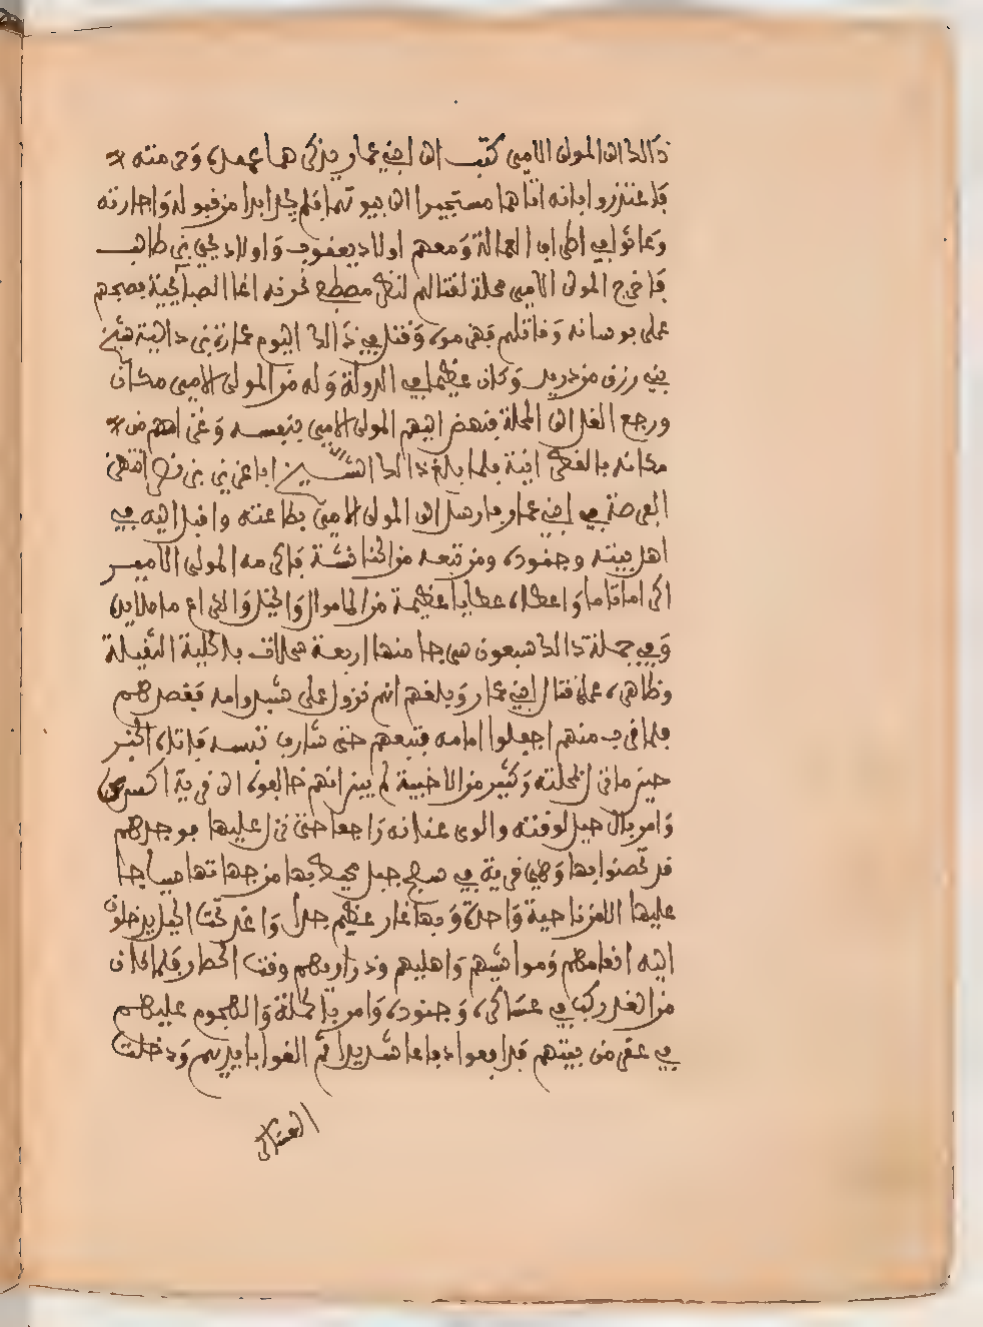 ذالك ان المولى الامير كتب الى ابني عمار يزكي هما عهده وحرمته
فاعتذروا بانه اتاهما مستجيرا الى بيوتهما فلم يجد ابدا من قبوله واجارته
وعاثوا في اطراف العمالة ومعهم اولاد يعقوب واولاد يحي بن طالب
فاخرج المولى الامير محلة لقتالهم لنظر مصطفى آغا الصبايحية فصبحهم
على بوسانه وقاتلهم فهزموه وقتل في ذالك اليوم عمارة بن دالية شيخ
بني رزق من دريد وكان عظيما في الدولة وله من المولى الامير مكان
ورجع الفل الى المحلة فنهض اليهم المولى الامير بنفسه وغزاهم من
مكانه بالفطراينة فلما بلغ ذالك الشيخ ابا عزيز بن نصر انتهز
الفرصة في ابني عمار فارسل الى المولى الامير بطاعته واقبل اليه في
اهل بيته وجنوده ومن تبعه من الحنانشة فاكرمه المولى الامير
اكراما تاما واعطاه عطايا عظيمة من الاموال والخيل والانعام ما ملا يده
وفي جملة ذالك سبعون سرجا منها اربعة محلات بالحلية الثقيلة
وظاهره على قتال ابني عمار وبلغهم انهم نزول على شبرو امامه فقصدهم
فلما قرب منهم اجفلوا امامه فتبعهم حتى شارف تبسه فاتاه الخبر
حين ما نزل بمحلته وكثير من الاخبية لم يبن انهم خالفوه الى قرية اكس
وامر بالرحيل لوقته والوى عنانه راجعا حتى نزل عليها فوجدهم
قد تحصنوا بها وهي قرية في سفح جبل محيط بها من جهاتها سياجا
عليها الا من ناحية واحدة وبها غار عظيم جدا واغد تحت الجبل يدخلون
اليه انعامهم ومواشيهم واهليهم وذراريهم وقت الحصار فلما كان
من الغد ركب في عساكره وجنوده وامر بالحملة والهجوم عليهم
في عقر من بيتهم فدافعوا دفاعا شديدا ثم القوا بايديهم ودخلت
العساكر